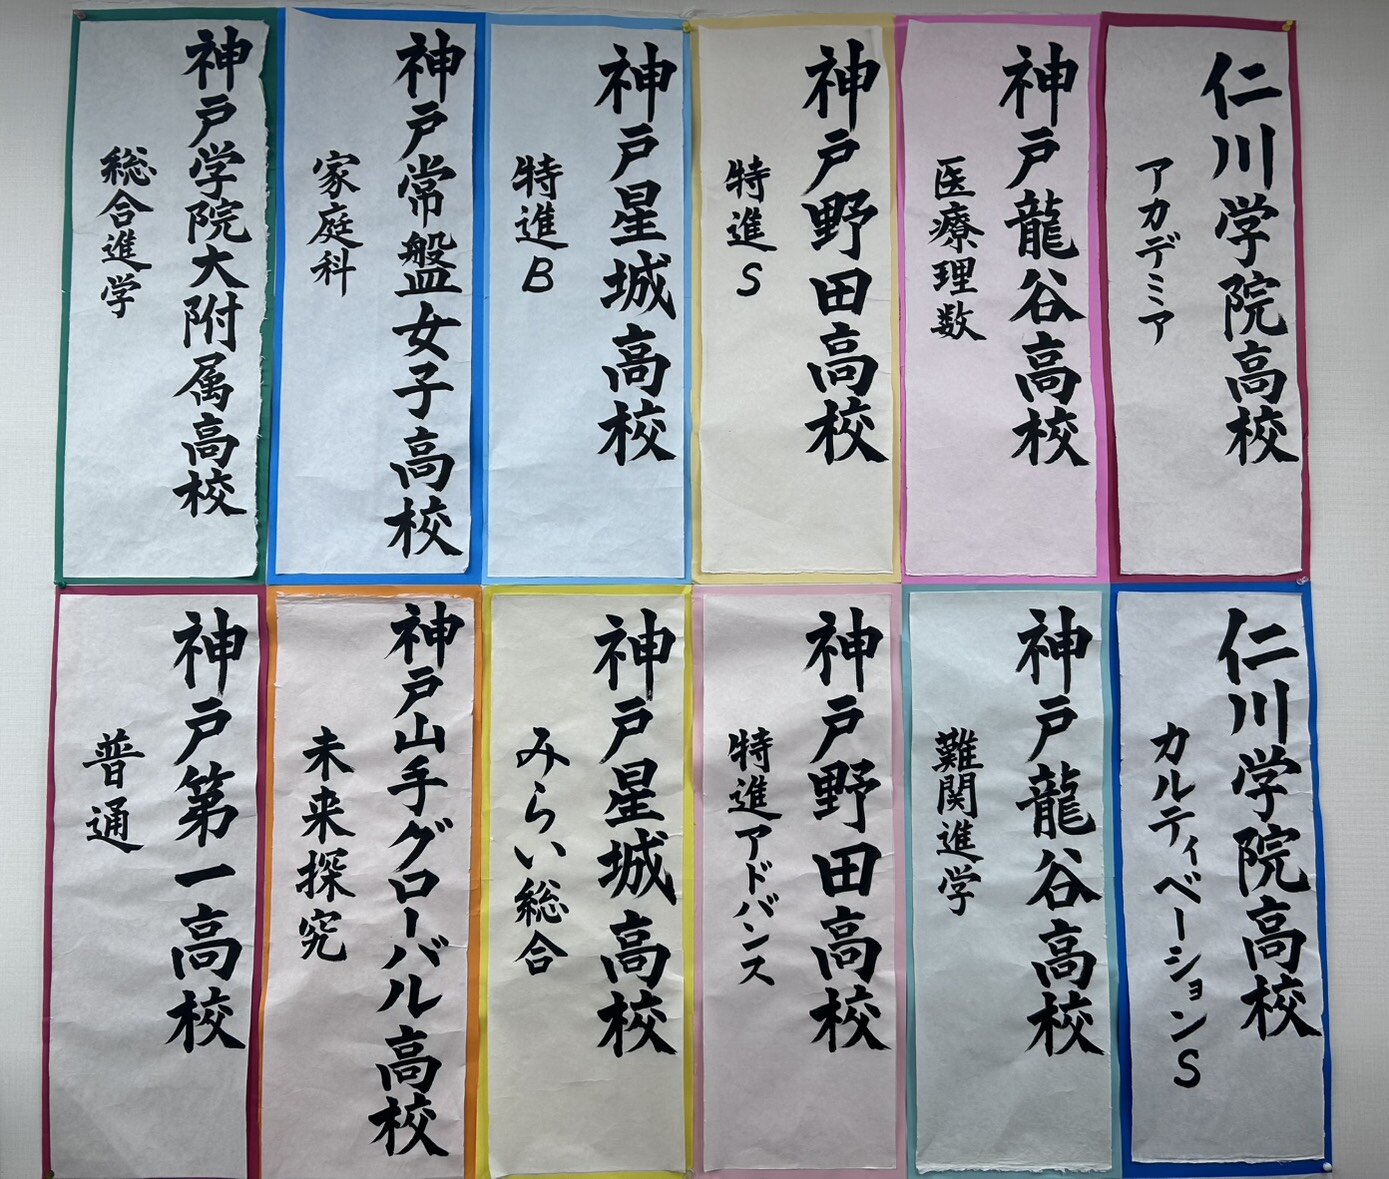 仁川学院高校
アカデミア
神戸龍谷高校
医療理数
神戸野田高校
特進S
神戸星城高校
特進B
神戸常盤女子高校
家庭科
神戸学院大附属高校
総合進学
仁川学院高校
カルティベーションS
神戸龍谷高校
難関進学
神戸野田高校
特進アドバンス
神戸星城高校
みらい総合
神戸山手グローバル高校
未来探究
神戸第一高校
普通